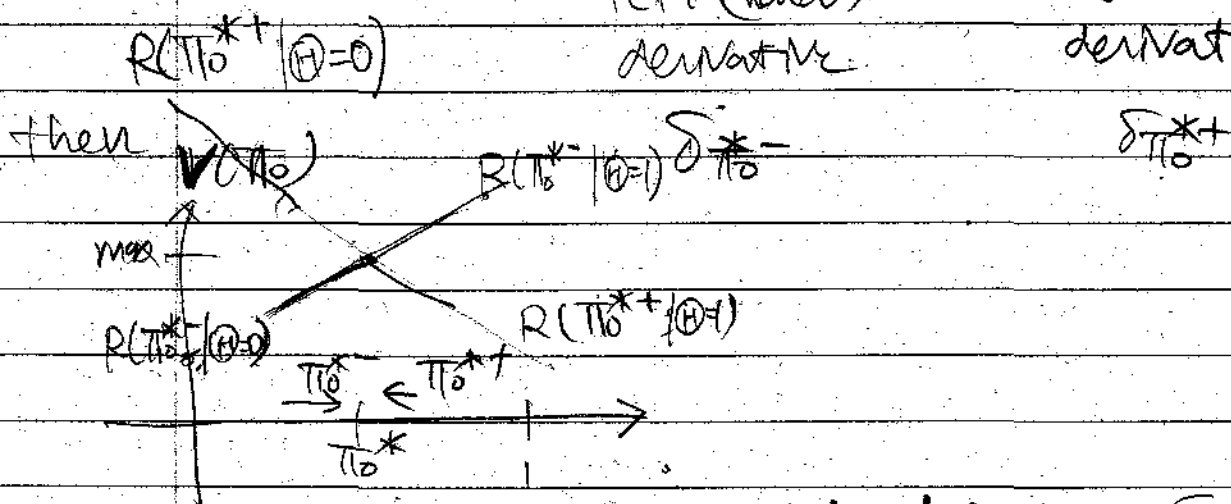 R(π₀*⁺ | Ⓗ=0)
derivative
derivat
then V(π₀)
R(π₀*⁻ | Ⓗ=1) δπ₀*⁻
δπ₀*⁺
max
R(π₀*⁻ | Ⓗ=0)
R(π₀*⁺ | Ⓗ=1)
π₀*⁻
π₀*⁺
π₀*